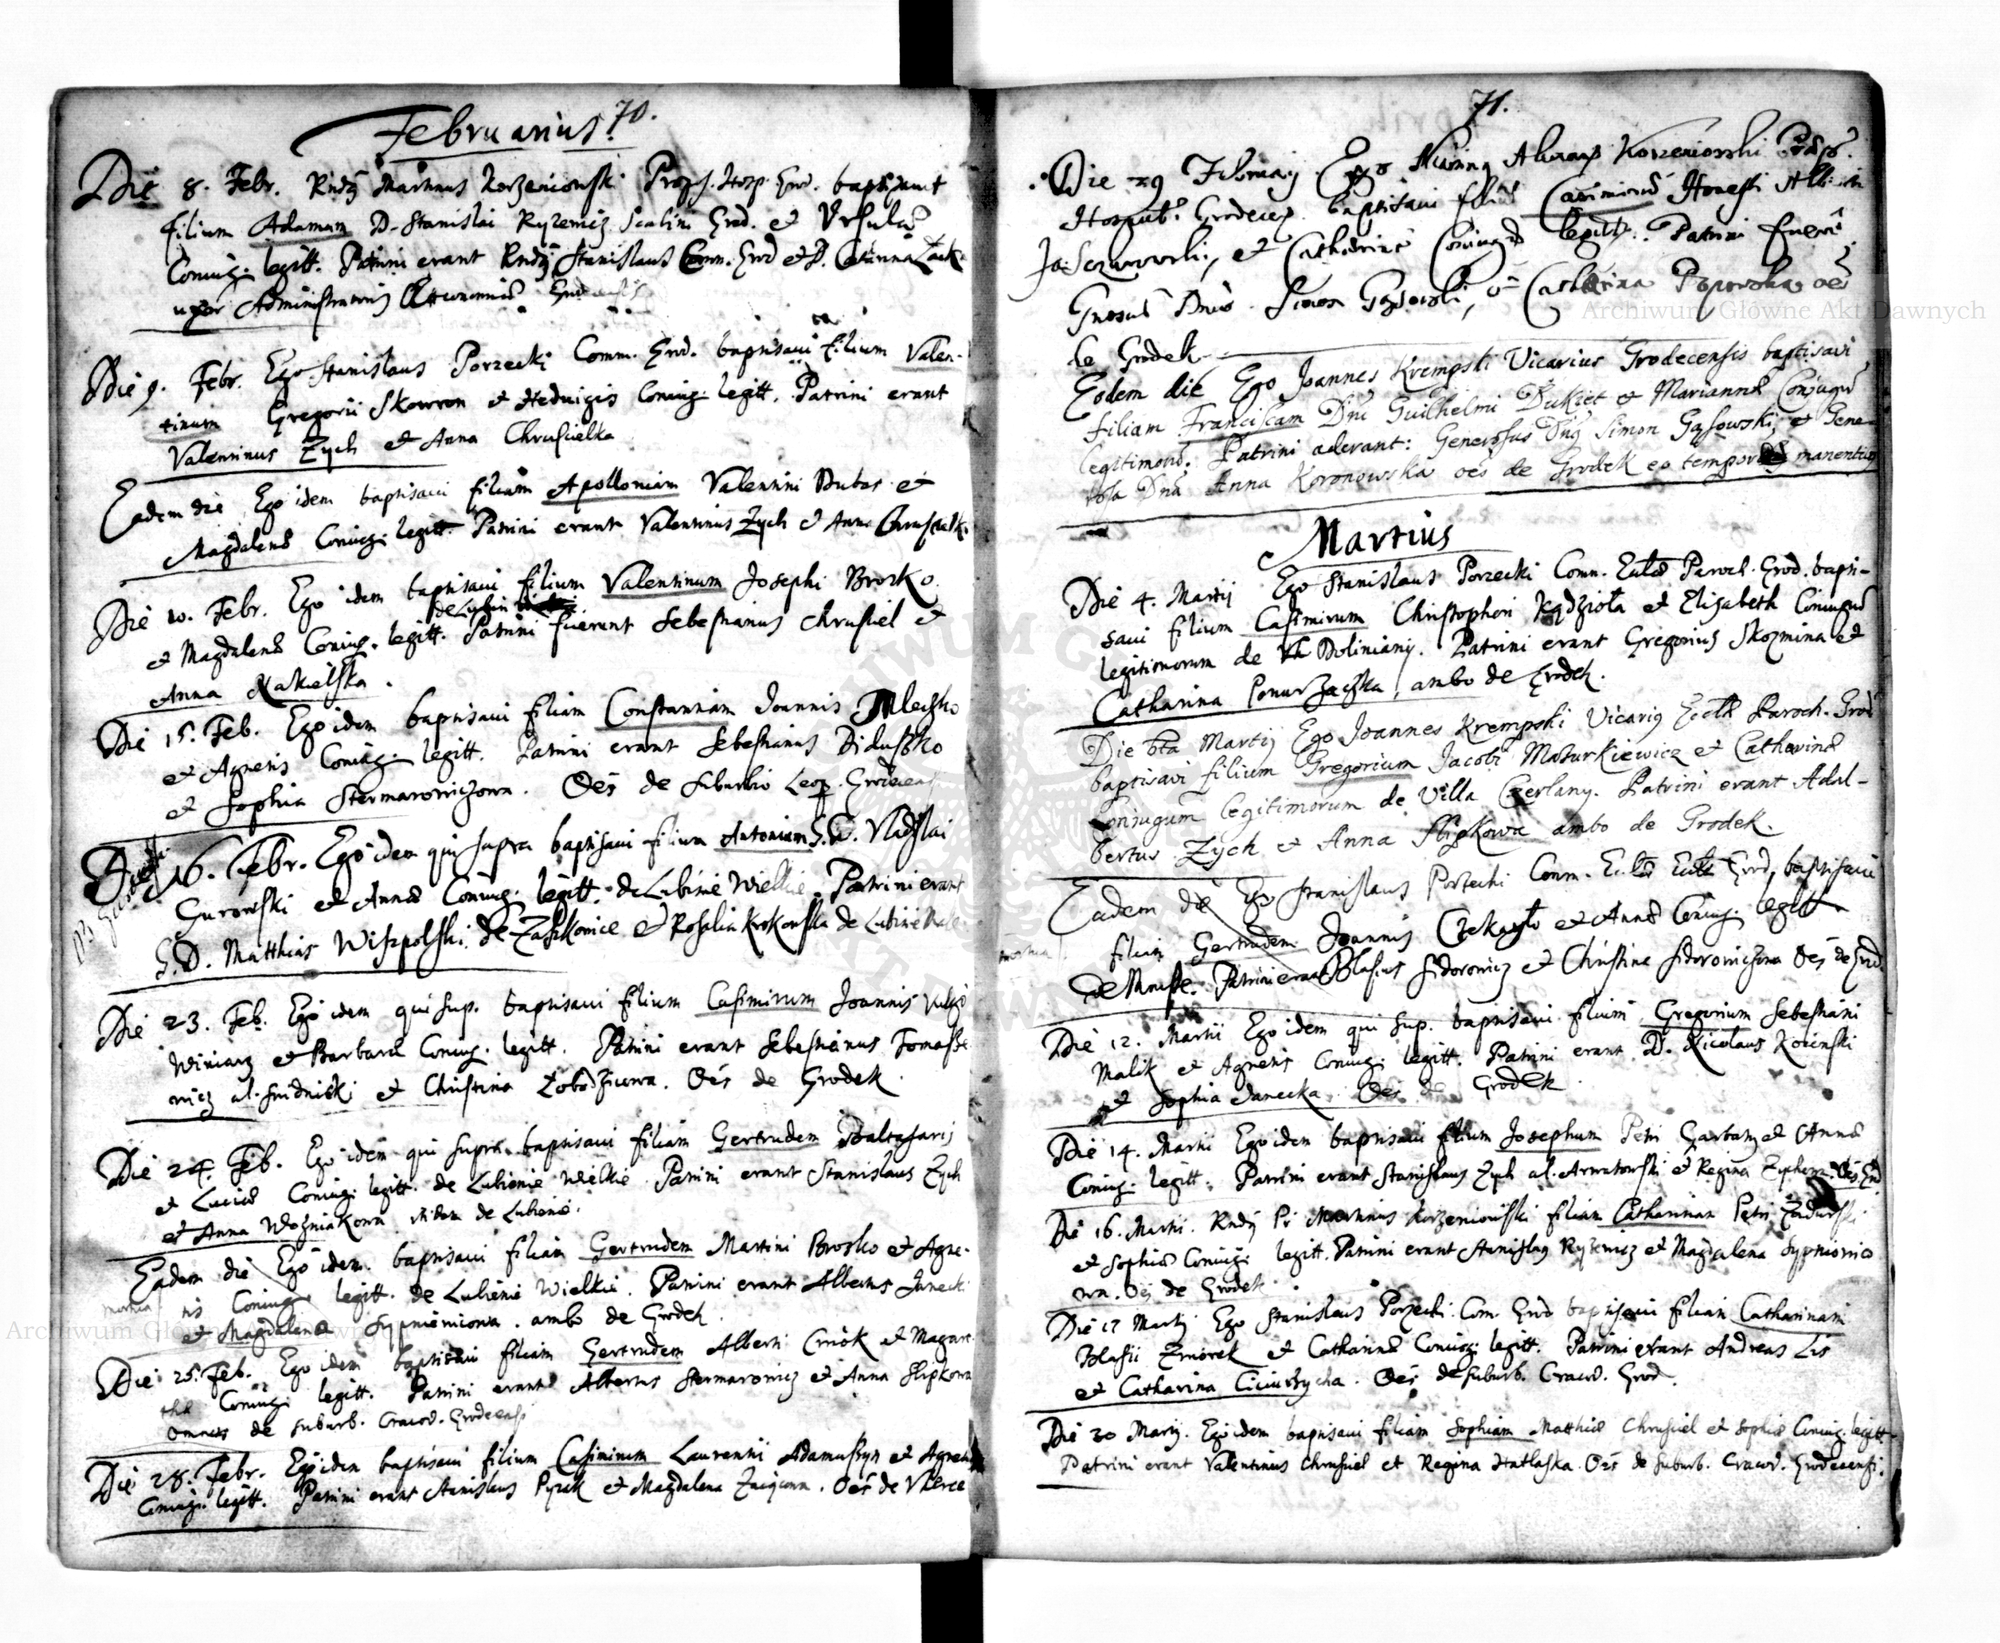 70.
Februarius.
Die 8. Febr. Rndq Martinus Korzeniowski Prop. Hosp. Grod. baptisavit
filium Adamum D. Stanislai Ryzewicz Scalini Grod. et Ursulæ
Coniug. legitt. Patrini erant Rndq Stanislaus Comm. Grod et D. Catarina
uxor Administratoris
Die 9. Febr. Ego Stanislaus Porzecki Comm. Grod. baptisavi filium Valen-
tinum Gregorii Skowron et Hedvigis Coniug. legitt. Patrini erant
Valentinus Zych et Anna Chrusielka
Eadem die Ego idem baptisavi filiam Apolloniam Valentini Dubas et
Magdalenæ Coniug. legitt. Patrini erant Valentinus Zych et Anna
Die 10. Febr. Ego idem baptisavi filium Valentinum Josephi Brosko
de Lubin
et Magdalenæ Coniug. legitt. Patrini fuerunt Sebestianus Chrusiel et
Anna Kakielska.
Die 15. Feb. Ego idem baptisavi filiam Constantiam Joannis Mleczko
et Agnetis Coniug. legitt. Patrini erant Sebestianus Diduszko
et Sophia Stermarowiczowa. Oēs de Suburbio Leop. Grodecensi
Die 16. Febr. Ego idem qui supra baptisavi filium Antonium G. D. Vladislai
Gurowski et Annæ Coniug. legitt. de Lubinie Wielkie. Patrini erant
G. D. Matthias Wiszpolski de Zaszkowice et Rosalia Krokowska de Lubinie
Die 23. Feb. Ego idem qui sup. baptisavi filium Casimirum Joannis
Winiarz et Barbaræ Coniug. legitt. Patrini erant Sebestianus Tomasze
wicz al. Snidnicki et Christina Lobodziowa. Oēs de Grodek.
Die 24. Feb. Ego idem qui supra baptisavi filiam Gertrudem Baltasaris
et Luciæ Coniug. legitt. de Lubienie Wielkie. Patrini erant Stanislaus Zych
et Anna Wozniakowa de Lubienie.
Eadem die Ego idem baptisavi filiam Gertrudem Martini Brosko et Agne-
tis Coniug. legitt. de Lubienie Wielkie. Patrini erant Albertus Janecki
mortua
et Magdalena Sypniewiowa. ambo de Grodek.
Die 25. Feb. Ego idem baptisavi filiam Gertrudem Alberti Cmiok et Magnre
Coniug. legitt. Patrini erant Albertus Stermarowicz et Anna Slipkowa
Omnes de Suburb. Cracov. Grodecensi
Die 28. Febr. Ego idem baptisavi filium Casimirum Laurentii Adamuszyn et Agnetis
Coniug. legitt. Patrini erant Stanislaus Pyrek et Magdalena Zaiącowa. Oēs de Vherce
71.
Die 29 Februarij Ego Korzeniowski
Hospit. Grodecen. baptisavi filiū Casimirū Honesti
et Catharinæ Coniugū legitt. Patrini fuerūt
Gnosus Dnus Simon Gąsowski, et Catharina Popowska oēs
de Grodek
Eodem die Ego Joannes Krempski Vicarius Grodecensis baptisavi
filiam Franciscam Dni Guilhelmi Dukiet et Mariannæ Conjugū
legitimorū. Patrini aderant: Generosus Dnq Simon Gąsowski, et Gene-
rosa Dna Anna Koronowska oēs de Grodek eo tempore manentium
Martius
Die 4. Martij Ego Stanislaus Porzecki Comm. Eccl. Paroch. Grod. bapti-
savi filium Casimirum Christophori Kądzioła et Elisabeth Coniugum
legitimorum de Doliniany. Patrini erant Gregorius Skozmina et
Catharina Ponurzaczka, ambo de Grodek.
Die 6ta Martij Ego Joannes Krempski Vicariq Eccl. Paroch. Grod
baptisavi filium Gregorium Jacobi Mazurkiewicz et Catherinæ
Conjugum legitimorum de Villa Czerlany. Patrini erant Adal-
bertus Zych et Anna Slipkowa ambo de Grodek.
Eadem die Ego Stanislaus Porzecki Comm. Grod. baptisavi
mortua
filiam Gertrudem Joannis Czekayło et Annæ Coniug. legitt.
Patrini erant Blasius Sidorowicz et Christina Sidorowiczowa Oēs de Grod.
Die 12. Martii Ego idem qui sup. baptisavi filium Gregorium Sebestiani
Malik et Agnetis Coniug. legitt. Patrini erant D. Nicolaus Kosinski
et Sophia Janecka. Oēs de Grodek
Die 14. Martii Ego idem baptisavi filium Josephum Petri Garbarz et Annæ
Coniug. legitt. Patrini erant Stanislaus Zych al. Arwatowski et Regina Zychowa. Oēs Grod.
Die 16. Martii. Rndq Martinus Korzeniowski filiam Catharinam Petri Zadurski
et Sophiæ Coniug. legitt. Patrini erant Stanislaq Ryzewicz et Magdalena Sypniewio
wa. Oēs de Grodek
Die 17 Martij Ego Stanislaus Porzecki Com. Grod baptisavi filiam Catharinam
Blasii Zmiorek et Catharinæ Coniug. legitt. Patrini erant Andreas Lis
et Catharina Ciciurzycha. Oēs de Suburb. Cracov. Grod.
Die 20 Martij. Ego idem baptisavi filiam Sophiam Matthiæ Chrusiel et Sophiæ Coniug. legitt.
Patrini erant Valentinus Chrusiel et Regina Hatlaska. Oēs de Suburb. Cracov. Grodecensi.
Archiwum Główne Akt Dawnych
Archiwum Główne Akt Dawnych